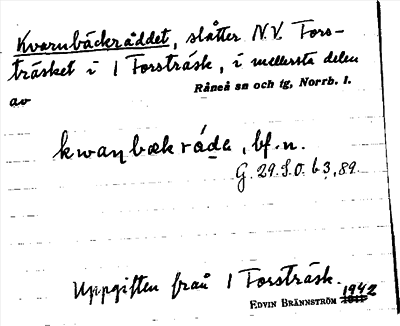 Kvarnbäckråddet, slåtter N.V. Fors-
träsket i 1 Forsträsk, i mellersta delen
Råneå sn och tg, Norrb. l.
av
kwaŋbækråda, bf. n.
G. 29. S.O. 63, 89.
Uppgiften från 1 Forsträsk.
1942
EDVIN BRÄNNSTRÖM